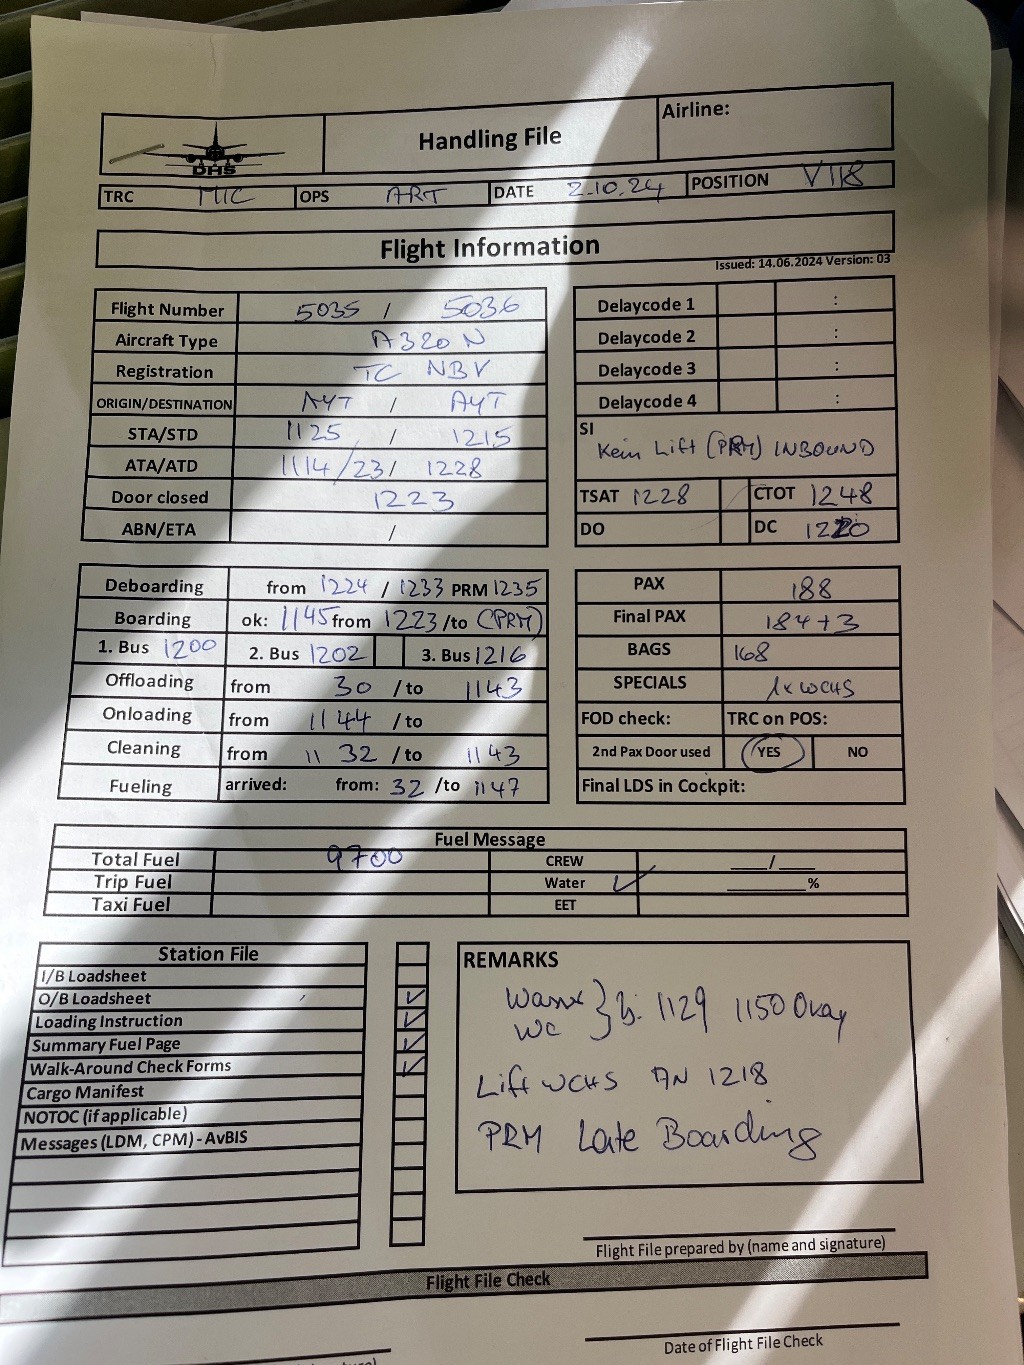 DHS
Handling File
Airline:
TRC MIC OPS ART DATE 2.10.24 POSITION V118
Flight Information
Issued: 14.06.2024 Version: 03
Flight Number 5035 / 5036
Aircraft Type A320N
Registration TC NBV
ORIGIN/DESTINATION AYT / AYT
STA/STD 1125 / 1215
ATA/ATD 1114/23/ 1228
Door closed 1223
ABN/ETA /
Delaycode 1 :
Delaycode 2 :
Delaycode 3 :
Delaycode 4 :
SI
Kein Lift (PRM) INBOUND
TSAT 1228 CTOT 1248
DO DC 1220
Deboarding from 1224 / 1233 PRM 1235
Boarding ok: 1145 from 1223 /to (PRM)
1. Bus 1200 2. Bus 1202 3. Bus 1216
Offloading from 30 /to 1143
Onloading from 1144 /to
Cleaning from 11 32 /to 1143
Fueling arrived: from: 32 /to 1147
PAX 188
Final PAX 184+3
BAGS 168
SPECIALS 1x WCHS
FOD check: TRC on POS:
2nd Pax Door used YES NO
Final LDS in Cockpit:
Fuel Message
Total Fuel 9700 CREW ____/____
Trip Fuel Water ✓ ________%
Taxi Fuel EET
Station File
I/B Loadsheet
O/B Loadsheet ✓
Loading Instruction ✓
Summary Fuel Page ✓
Walk-Around Check Forms ✓
Cargo Manifest
NOTOC (if applicable)
Messages (LDM, CPM) - AvBIS
REMARKS
} b: 1129 1150 Okay
WC
Lift WCHS AN 1218
PRM Late Boarding
Flight File prepared by (name and signature)
Flight File Check
Date of Flight File Check